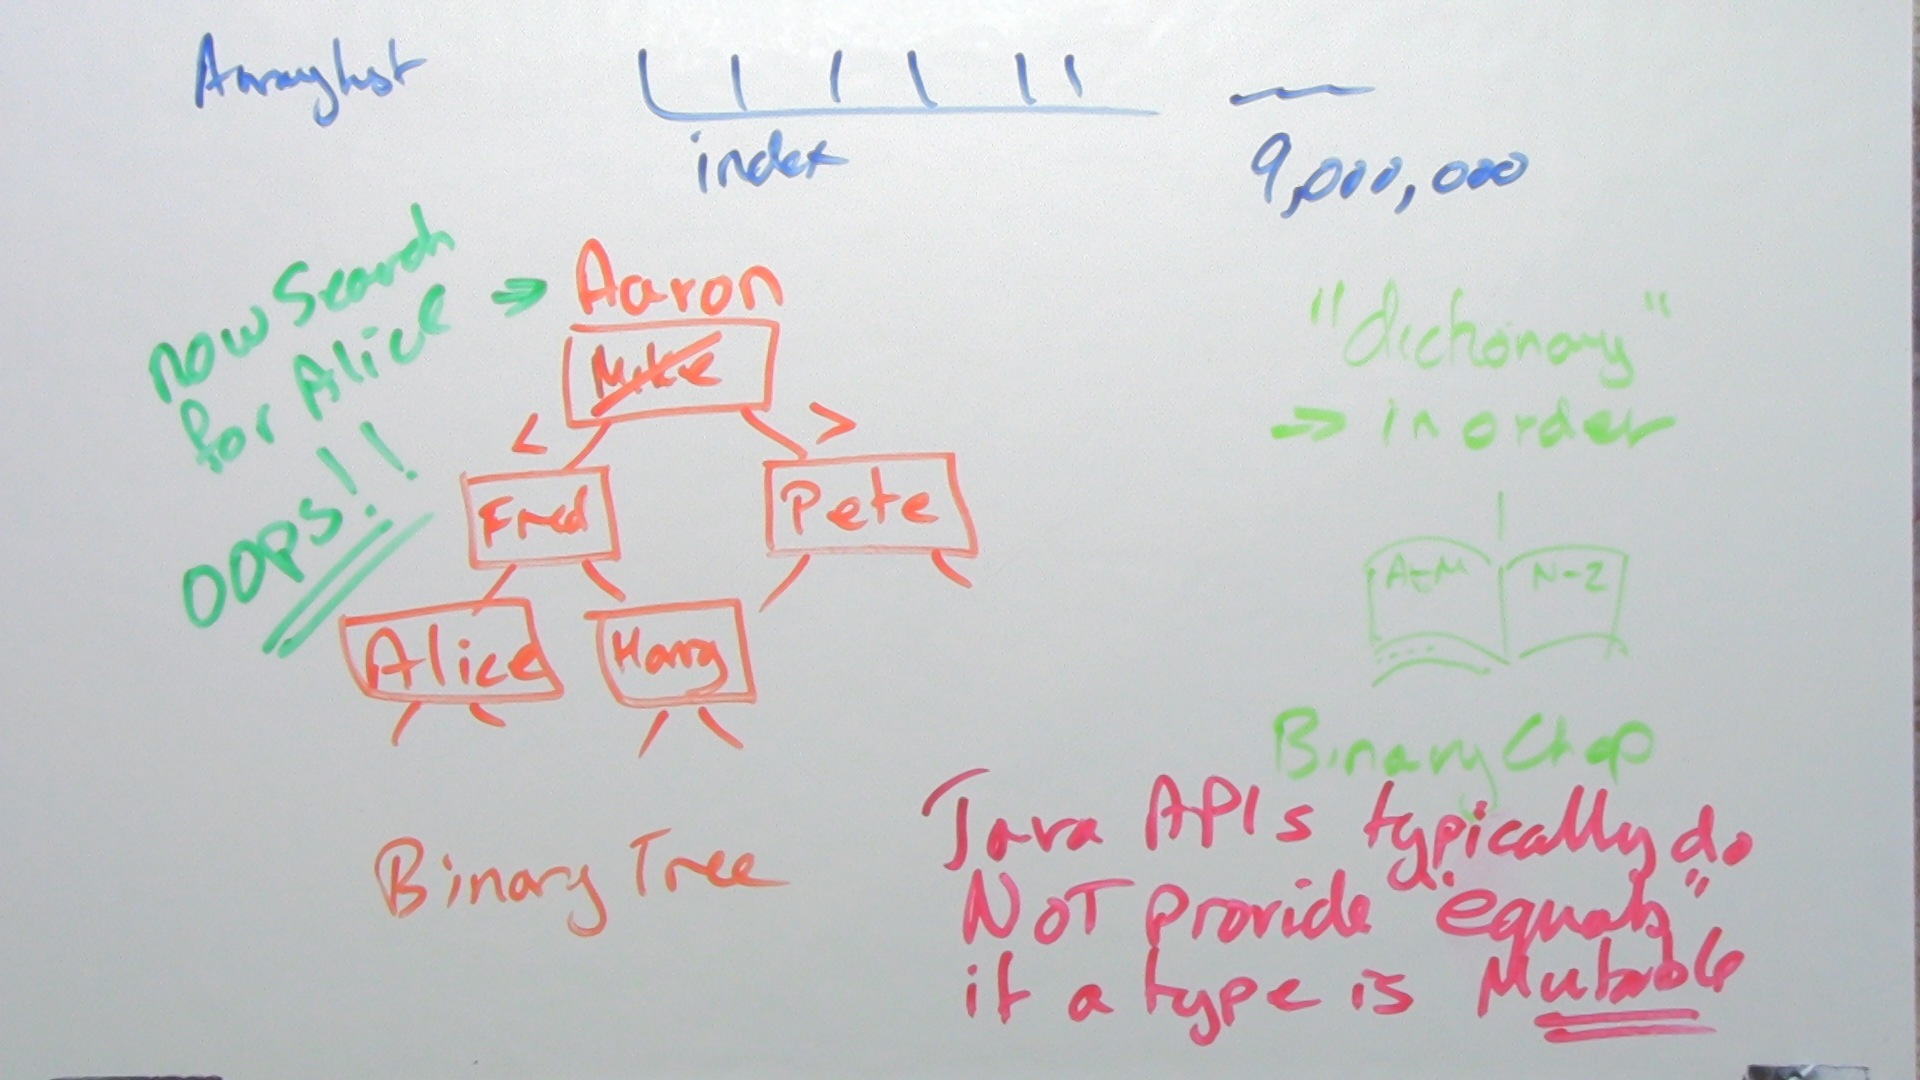 Arraylist
index
9,000,000
now Search
for Alice
oops!!
Aaron
Mike
<
>
Fred
Pete
Alice
Harry
Binary Tree
"dictionary"
→ in order
A-M
N-Z
Binary Chop
Java APIs typically do
NOT provide "equals"
if a type is Mutable